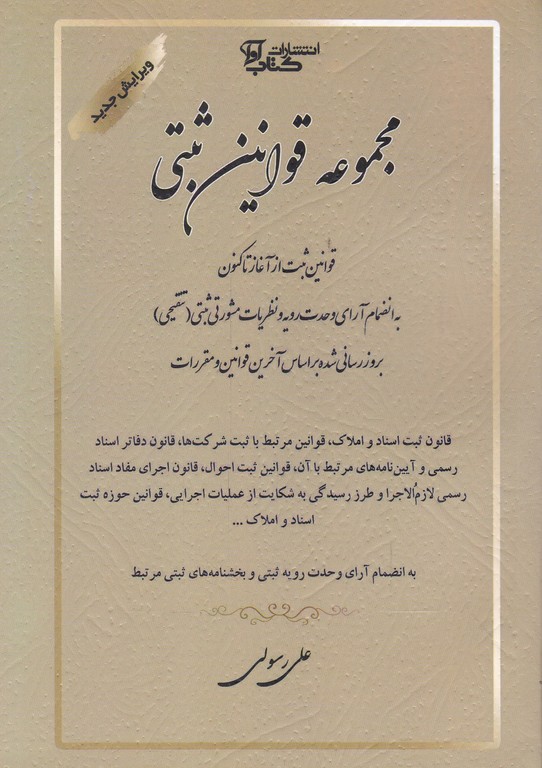 انتشارات
کتاب آوا
ویرایش جدید
مجموعه قوانین ثبتی
قوانین ثبت از آغاز تا کنون
به انضمام آرای وحدت رویه و نظریات مشورتی ثبتی (تنقیحی)
بروز رسانی شده بر اساس آخرین قوانین و مقررات
قانون ثبت اسناد و املاک، قوانین مرتبط با ثبت شرکت‌ها، قانون دفاتر اسناد
رسمی و آیین‌نامه‌های مرتبط با آن، قوانین ثبت احوال، قانون اجرای مفاد اسناد
رسمی لازمُ‌الاجرا و طرز رسیدگی به شکایت از عملیات اجرایی، قوانین حوزه ثبت
اسناد و املاک ...
به انضمام آرای وحدت رویه ثبتی و بخشنامه‌های ثبتی مرتبط
علی رسولی